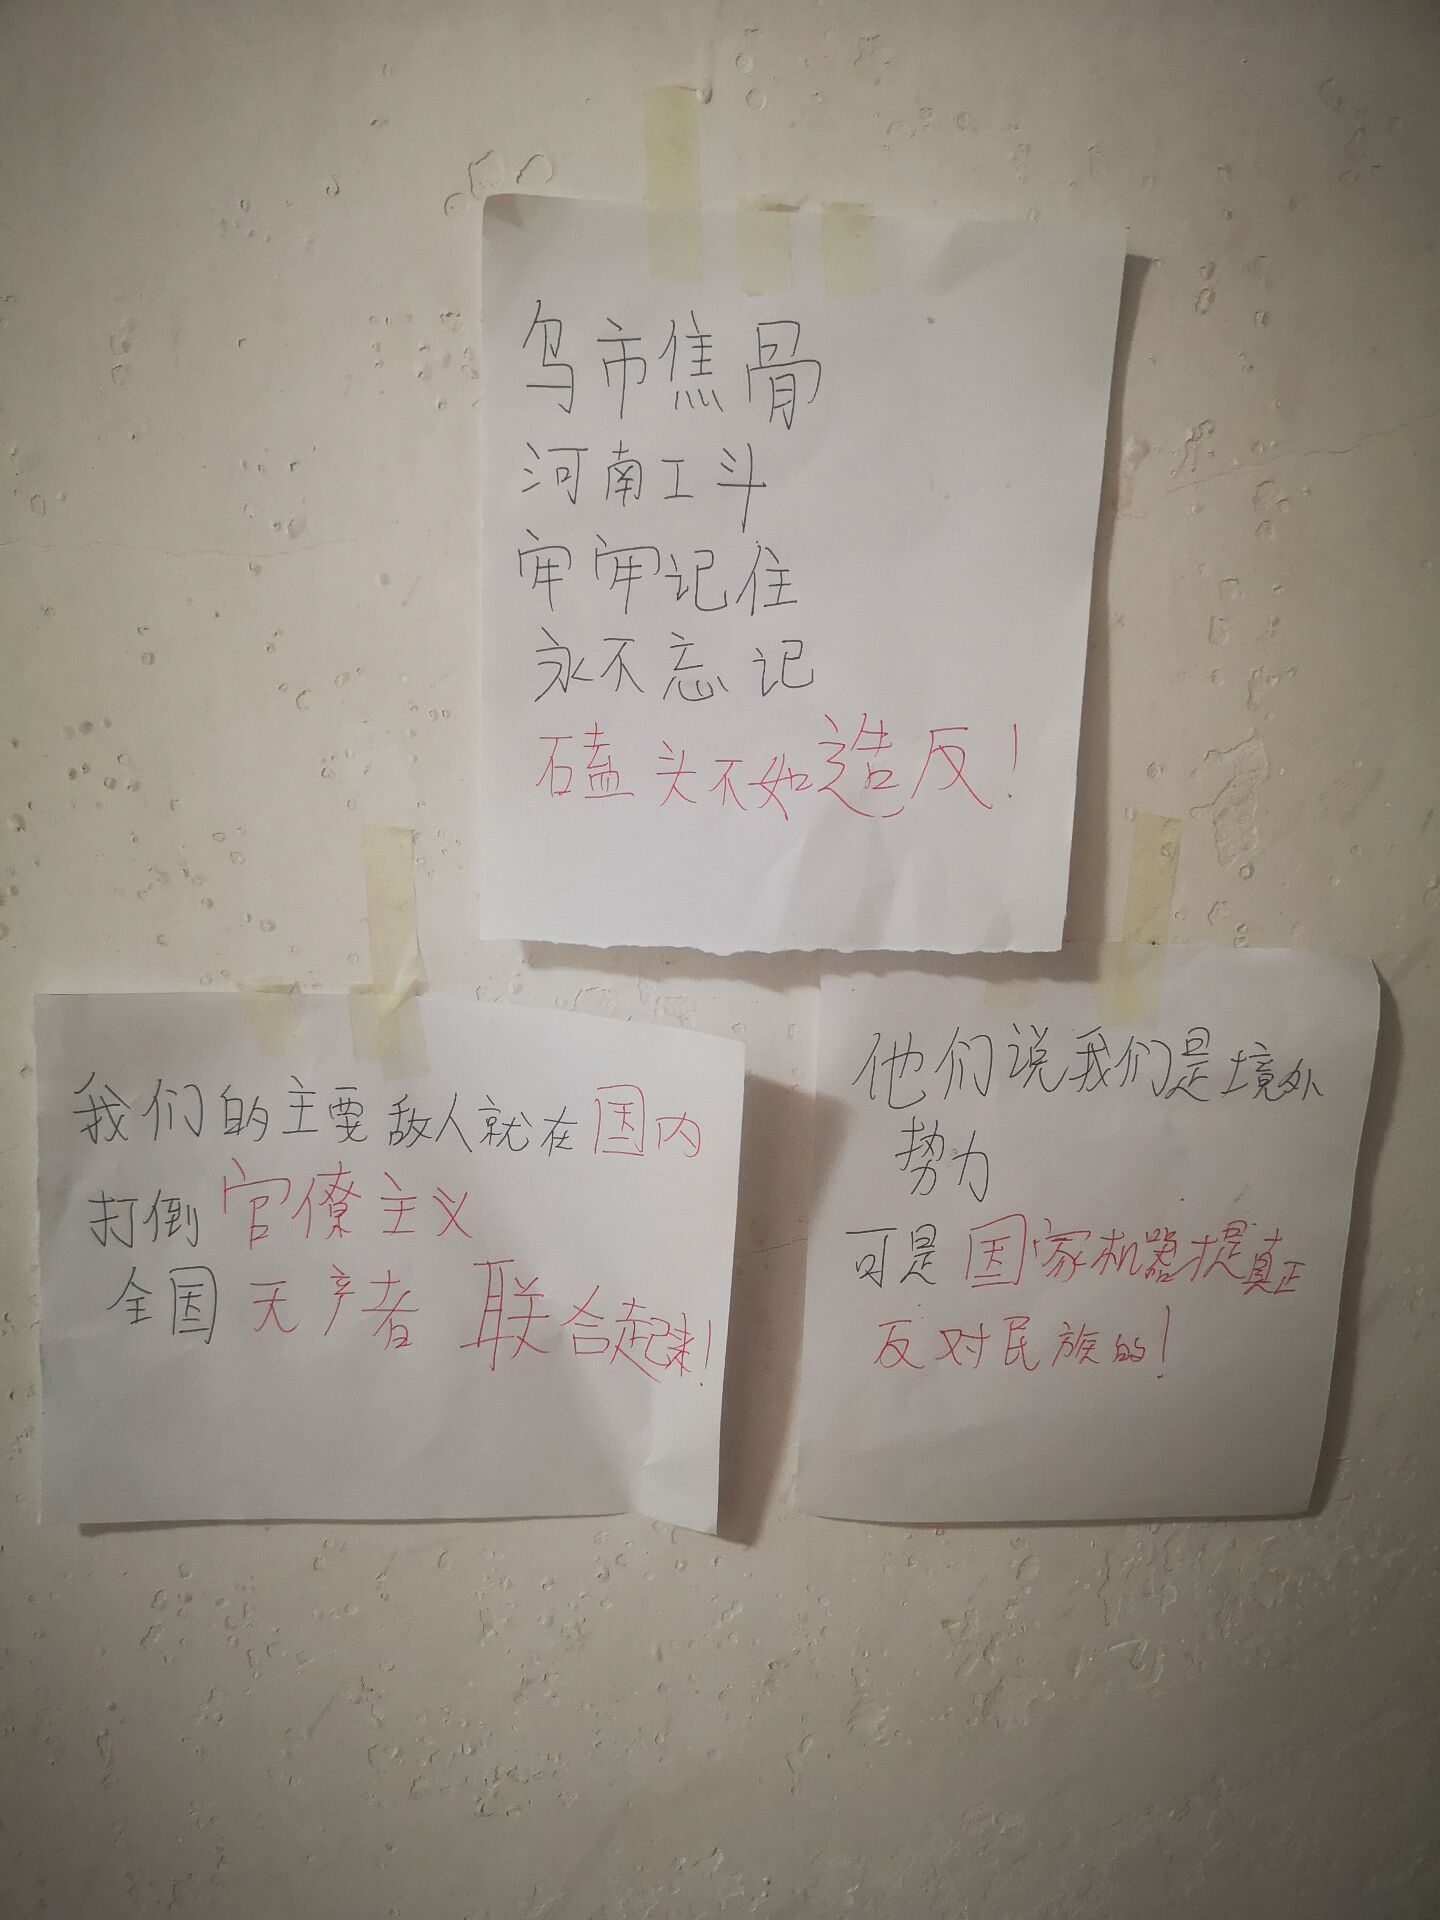 乌市焦骨
河南工斗
牢牢记住
永不忘记
磕头不如造反！
我们的主要敌人就在国内
打倒官僚主义
全国无产者 联合起来！
他们说我们是境外
势力
可是国家机器提真正
反对民族的！